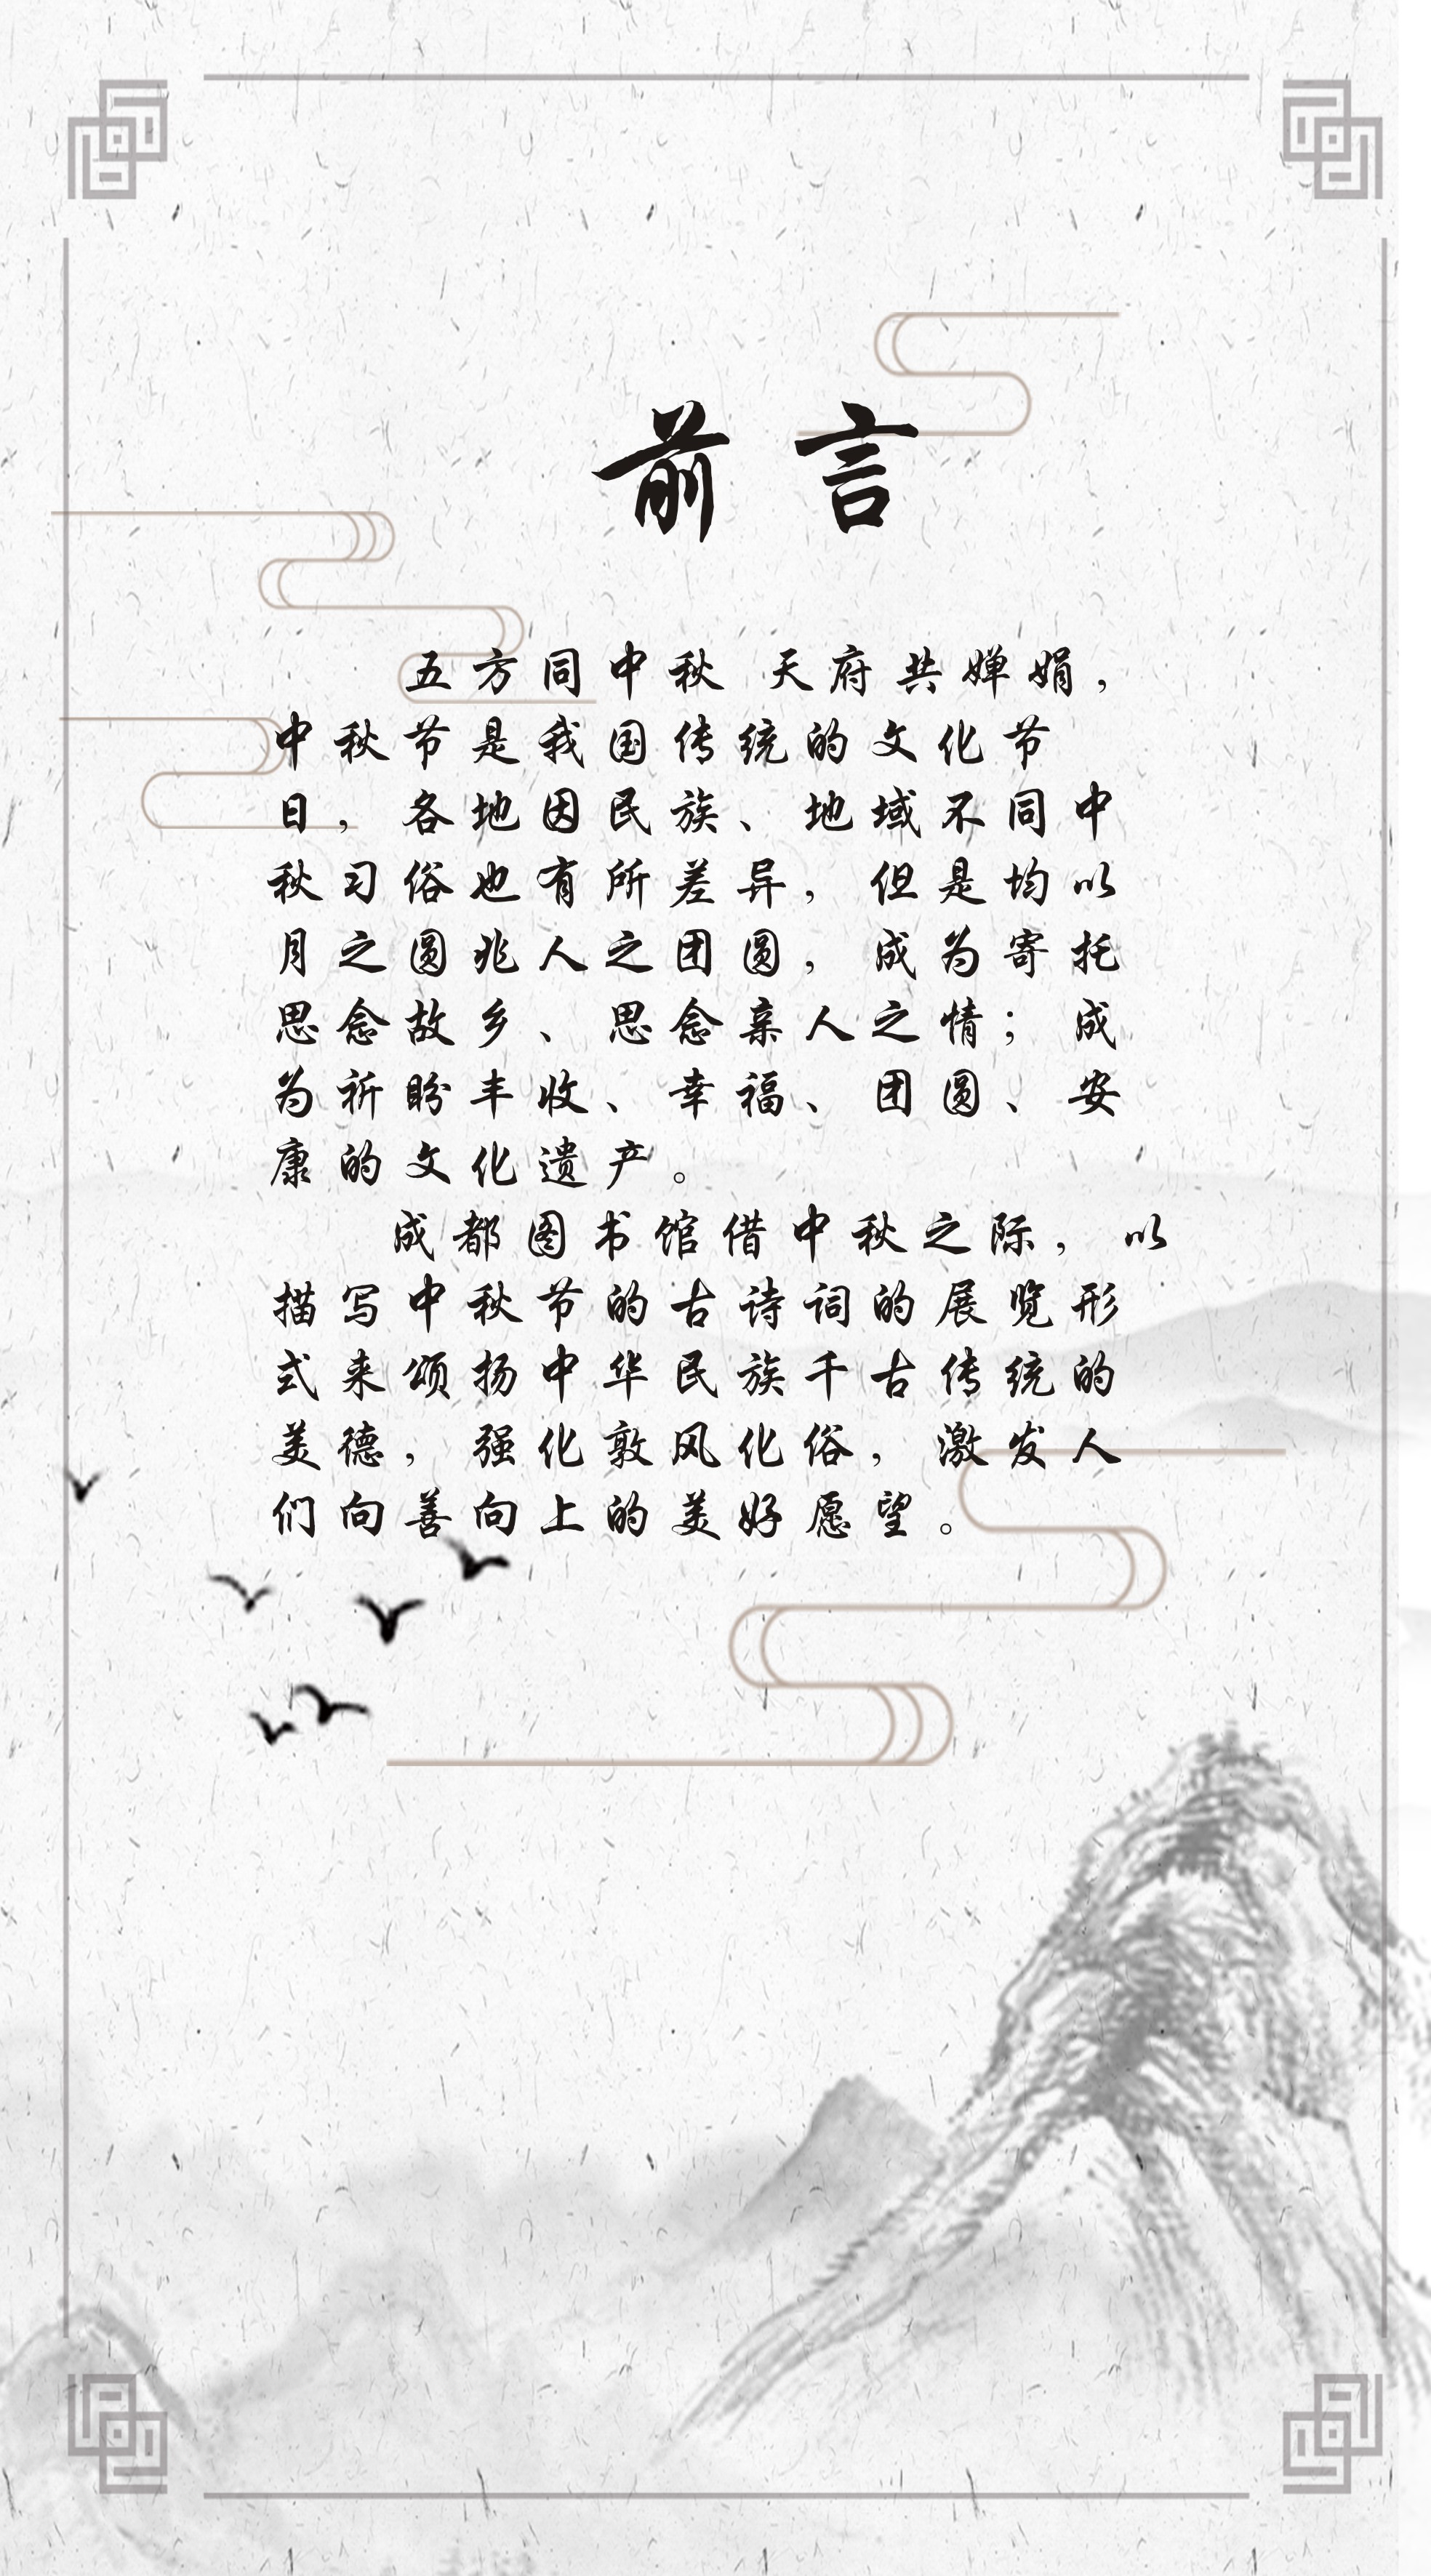 前言
五方同中秋 天府共婵娟，
中秋节是我国传统的文化节
日，各地因民族、地域不同中
秋习俗也有所差异，但是均以
月之圆兆人之团圆，成为寄托
思念故乡、思念亲人之情；成
为祈盼丰收、幸福、团圆、安
康的文化遗产。
成都图书馆借中秋之际，以
描写中秋节的古诗词的展览形
式来颂扬中华民族千古传统的
美德，强化敦风化俗，激发人
们向善向上的美好愿望。